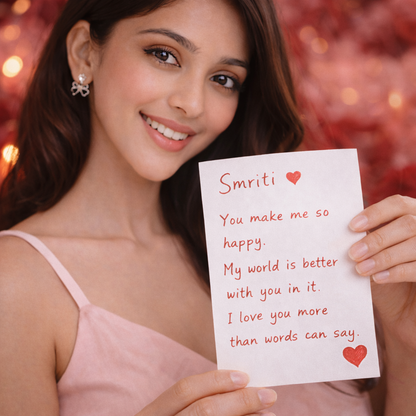 Smriti ❤
You make me so
happy.
My world is better
with you in it.
I love you more
than words can say.